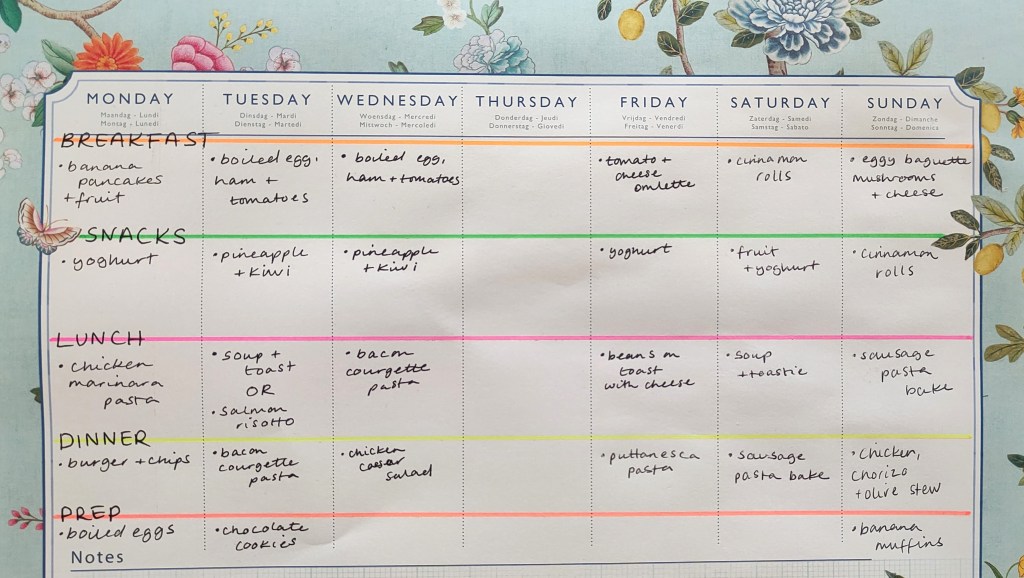 MONDAY
Maandag - Lundi
Montag - Lunedi
TUESDAY
Dinsdag - Mardi
Dienstag - Martedi
WEDNESDAY
Woensdag - Mercredi
Mittwoch - Mercoledi
THURSDAY
Donderdag - Jeudi
Donnerstag - Giovedi
FRIDAY
Vrijdag - Vendredi
Freitag - Venerdi
SATURDAY
Zaterdag - Samedi
Samstag - Sabato
SUNDAY
Zondag - Dimanche
Sonntag - Domenica
BREAKFAST
• banana
pancakes
+ fruit
• boiled egg,
ham +
tomatoes
• boiled egg,
ham + tomatoes
• tomato +
cheese
omlette
• cinnamon
rolls
• eggy baguette
mushrooms
+ cheese
SNACKS
• yoghurt
• pineapple
+ kiwi
• pineapple
+ kiwi
• yoghurt
• fruit
+ yoghurt
• cinnamon
rolls
LUNCH
• chicken
marinara
pasta
• soup +
toast
OR
• salmon
risotto
• bacon
courgette
pasta
• beans on
toast
with cheese
• soup
+ toastie
• sausage
pasta
bake
DINNER
• burger + chips
• bacon
courgette
pasta
• chicken
caesar
salad
• puttanesca
pasta
• sausage
pasta bake
• chicken,
chorizo
+ olive stew
PREP
• boiled eggs
• chocolate
cookies
• banana
muffins
Notes